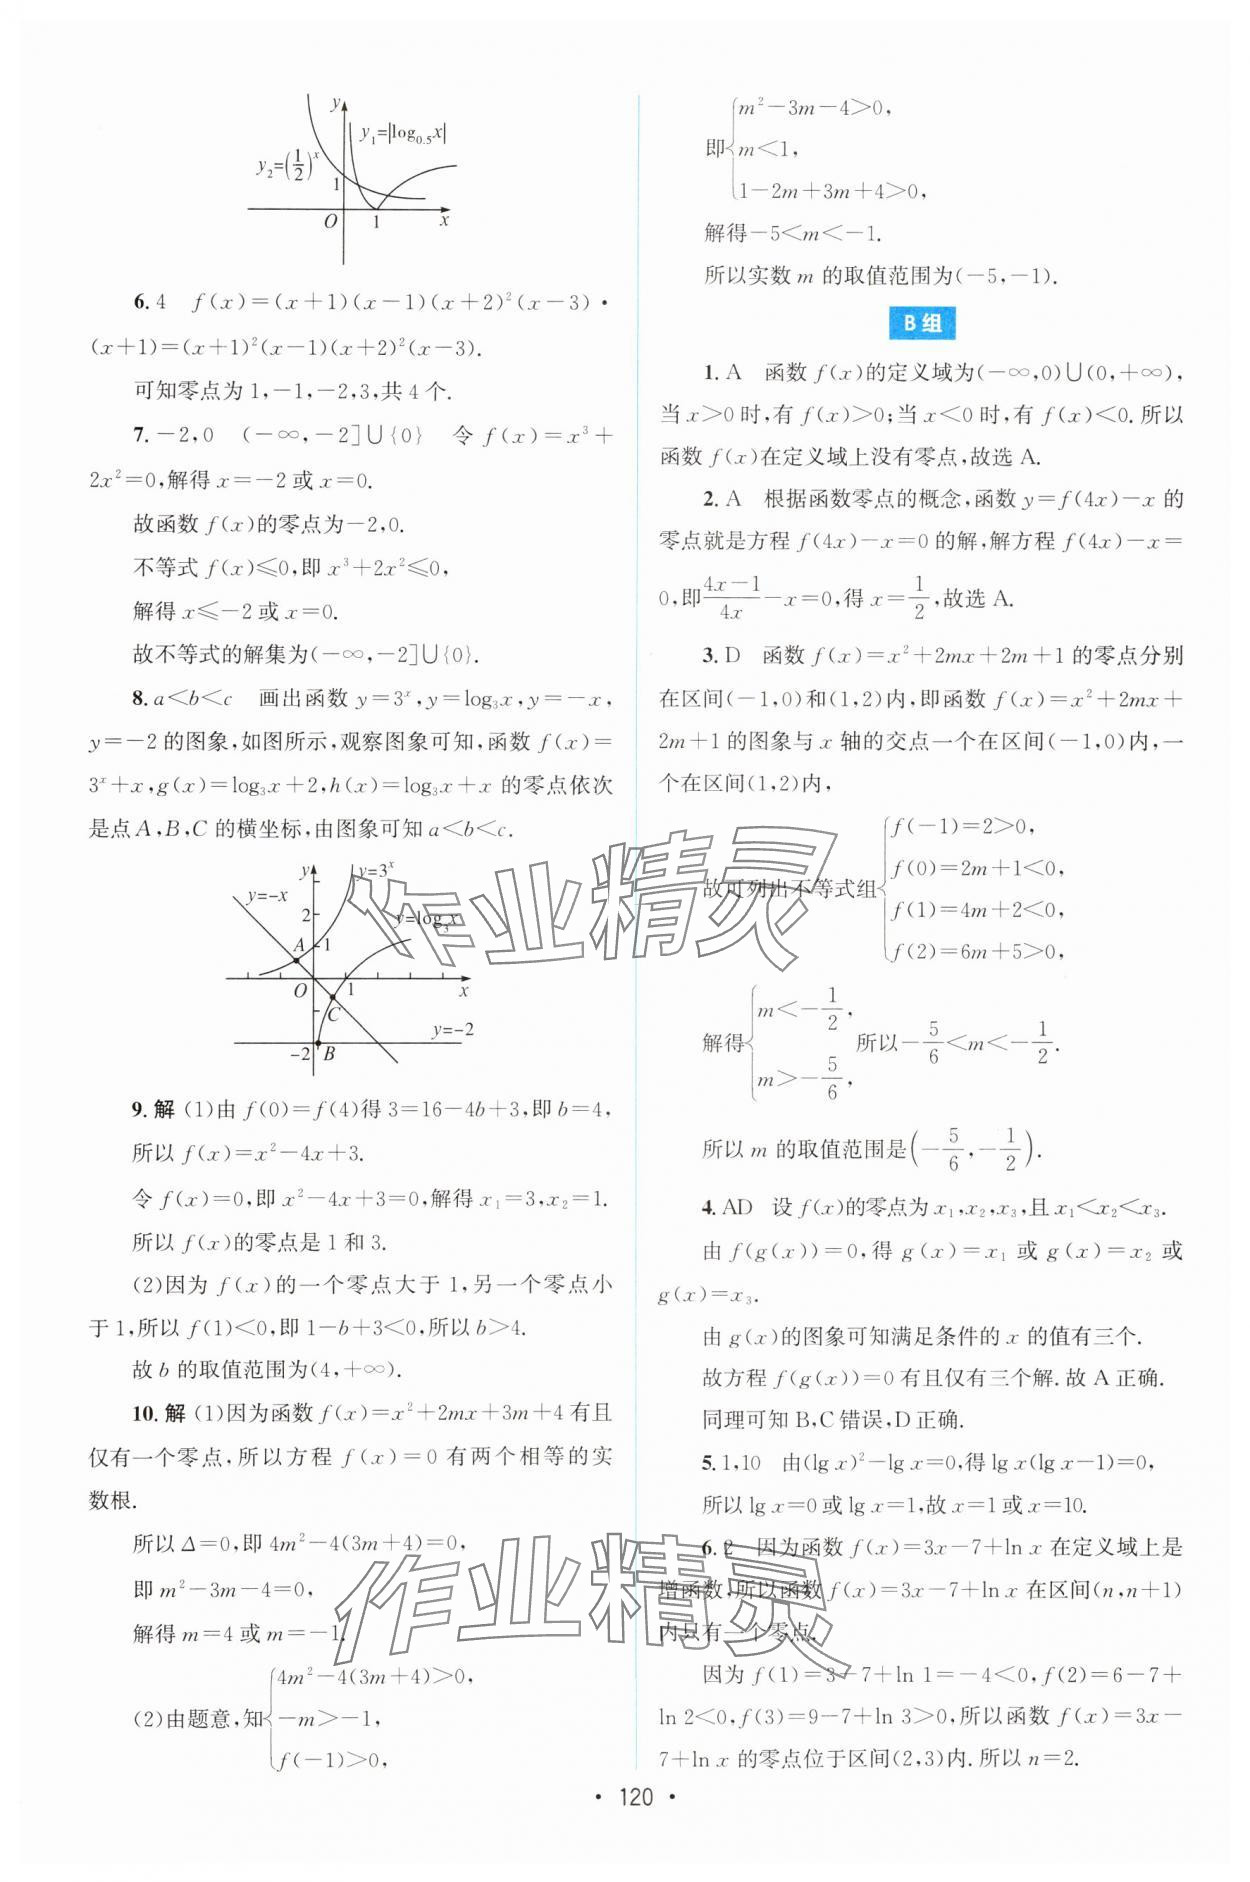 y
y₁=|log₀.₅x|
y₂=(1/2)ˣ
1
O 1 x
6. 4 f(x)=(x+1)(x-1)(x+2)²(x-3)·
(x+1)=(x+1)²(x-1)(x+2)²(x-3).
可知零点为 1,-1,-2,3,共 4 个.
7. -2,0 (-∞,-2]∪{0} 令 f(x)=x³+
2x²=0,解得 x=-2 或 x=0.
故函数 f(x)的零点为-2,0.
不等式 f(x)≤0,即 x³+2x²≤0,
解得 x≤-2 或 x=0.
故不等式的解集为(-∞,-2]∪{0}.
8. a<b<c 画出函数 y=3ˣ,y=log₃x,y=-x,
y=-2 的图象,如图所示,观察图象可知,函数 f(x)=
3ˣ+x,g(x)=log₃x+2,h(x)=log₃x+x 的零点依次
是点 A,B,C 的横坐标,由图象可知 a<b<c.
y y=3ˣ
y=-x
2
y=log₃x
A 1
O 1 x
C
y=-2
-2 B
9. 解 (1)由 f(0)=f(4)得 3=16-4b+3,即 b=4,
所以 f(x)=x²-4x+3.
令 f(x)=0,即 x²-4x+3=0,解得 x₁=3,x₂=1.
所以 f(x)的零点是 1 和 3.
(2)因为 f(x)的一个零点大于 1,另一个零点小
于 1,所以 f(1)<0,即 1-b+3<0,所以 b>4.
故 b 的取值范围为(4,+∞).
10. 解 (1)因为函数 f(x)=x²+2mx+3m+4 有且
仅有一个零点,所以方程 f(x)=0 有两个相等的实
数根.
所以 Δ=0,即 4m²-4(3m+4)=0,
即 m²-3m-4=0,
解得 m=4 或 m=-1.
(2)由题意,知{4m²-4(3m+4)>0,
-m>-1,
f(-1)>0,
即{m²-3m-4>0,
m<1,
1-2m+3m+4>0,
解得-5<m<-1.
所以实数 m 的取值范围为(-5,-1).
B 组
1. A 函数 f(x)的定义域为(-∞,0)∪(0,+∞),
当 x>0 时,有 f(x)>0;当 x<0 时,有 f(x)<0.所以
函数 f(x)在定义域上没有零点,故选 A.
2. A 根据函数零点的概念,函数 y=f(4x)-x 的
零点就是方程 f(4x)-x=0 的解,解方程 f(4x)-x=
0,即(4x-1)/4x-x=0,得 x=1/2,故选 A.
3. D 函数 f(x)=x²+2mx+2m+1 的零点分别
在区间(-1,0)和(1,2)内,即函数 f(x)=x²+2mx+
2m+1 的图象与 x 轴的交点一个在区间(-1,0)内,一
个在区间(1,2)内,
故可列出不等式组{f(-1)=2>0,
f(0)=2m+1<0,
f(1)=4m+2<0,
f(2)=6m+5>0,
解得{m<-1/2,
m>-5/6, 所以-5/6<m<-1/2.
所以 m 的取值范围是(-5/6,-1/2).
4. AD 设 f(x)的零点为 x₁,x₂,x₃,且 x₁<x₂<x₃.
由 f(g(x))=0,得 g(x)=x₁ 或 g(x)=x₂ 或
g(x)=x₃.
由 g(x)的图象可知满足条件的 x 的值有三个.
故方程 f(g(x))=0 有且仅有三个解.故 A 正确.
同理可知 B,C 错误,D 正确.
5. 1,10 由(lg x)²-lg x=0,得 lg x(lg x-1)=0,
所以 lg x=0 或 lg x=1,故 x=1 或 x=10.
6. 2 因为函数 f(x)=3x-7+ln x 在定义域上是
增函数,所以函数 f(x)=3x-7+ln x 在区间(n,n+1)
内只有一个零点.
因为 f(1)=3-7+ln 1=-4<0,f(2)=6-7+
ln 2<0,f(3)=9-7+ln 3>0,所以函数 f(x)=3x-
7+ln x 的零点位于区间(2,3)内.所以 n=2.
作业精灵
作业精灵
· 120 ·